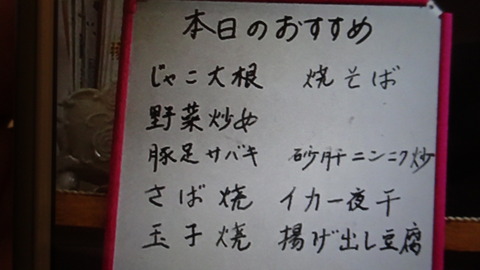 本日のおすすめ
じゃこ大根 焼そば
野菜炒め
豚足サバキ 砂肝ニンニク炒
さば焼 イカ一夜干
玉子焼 揚げ出し豆腐